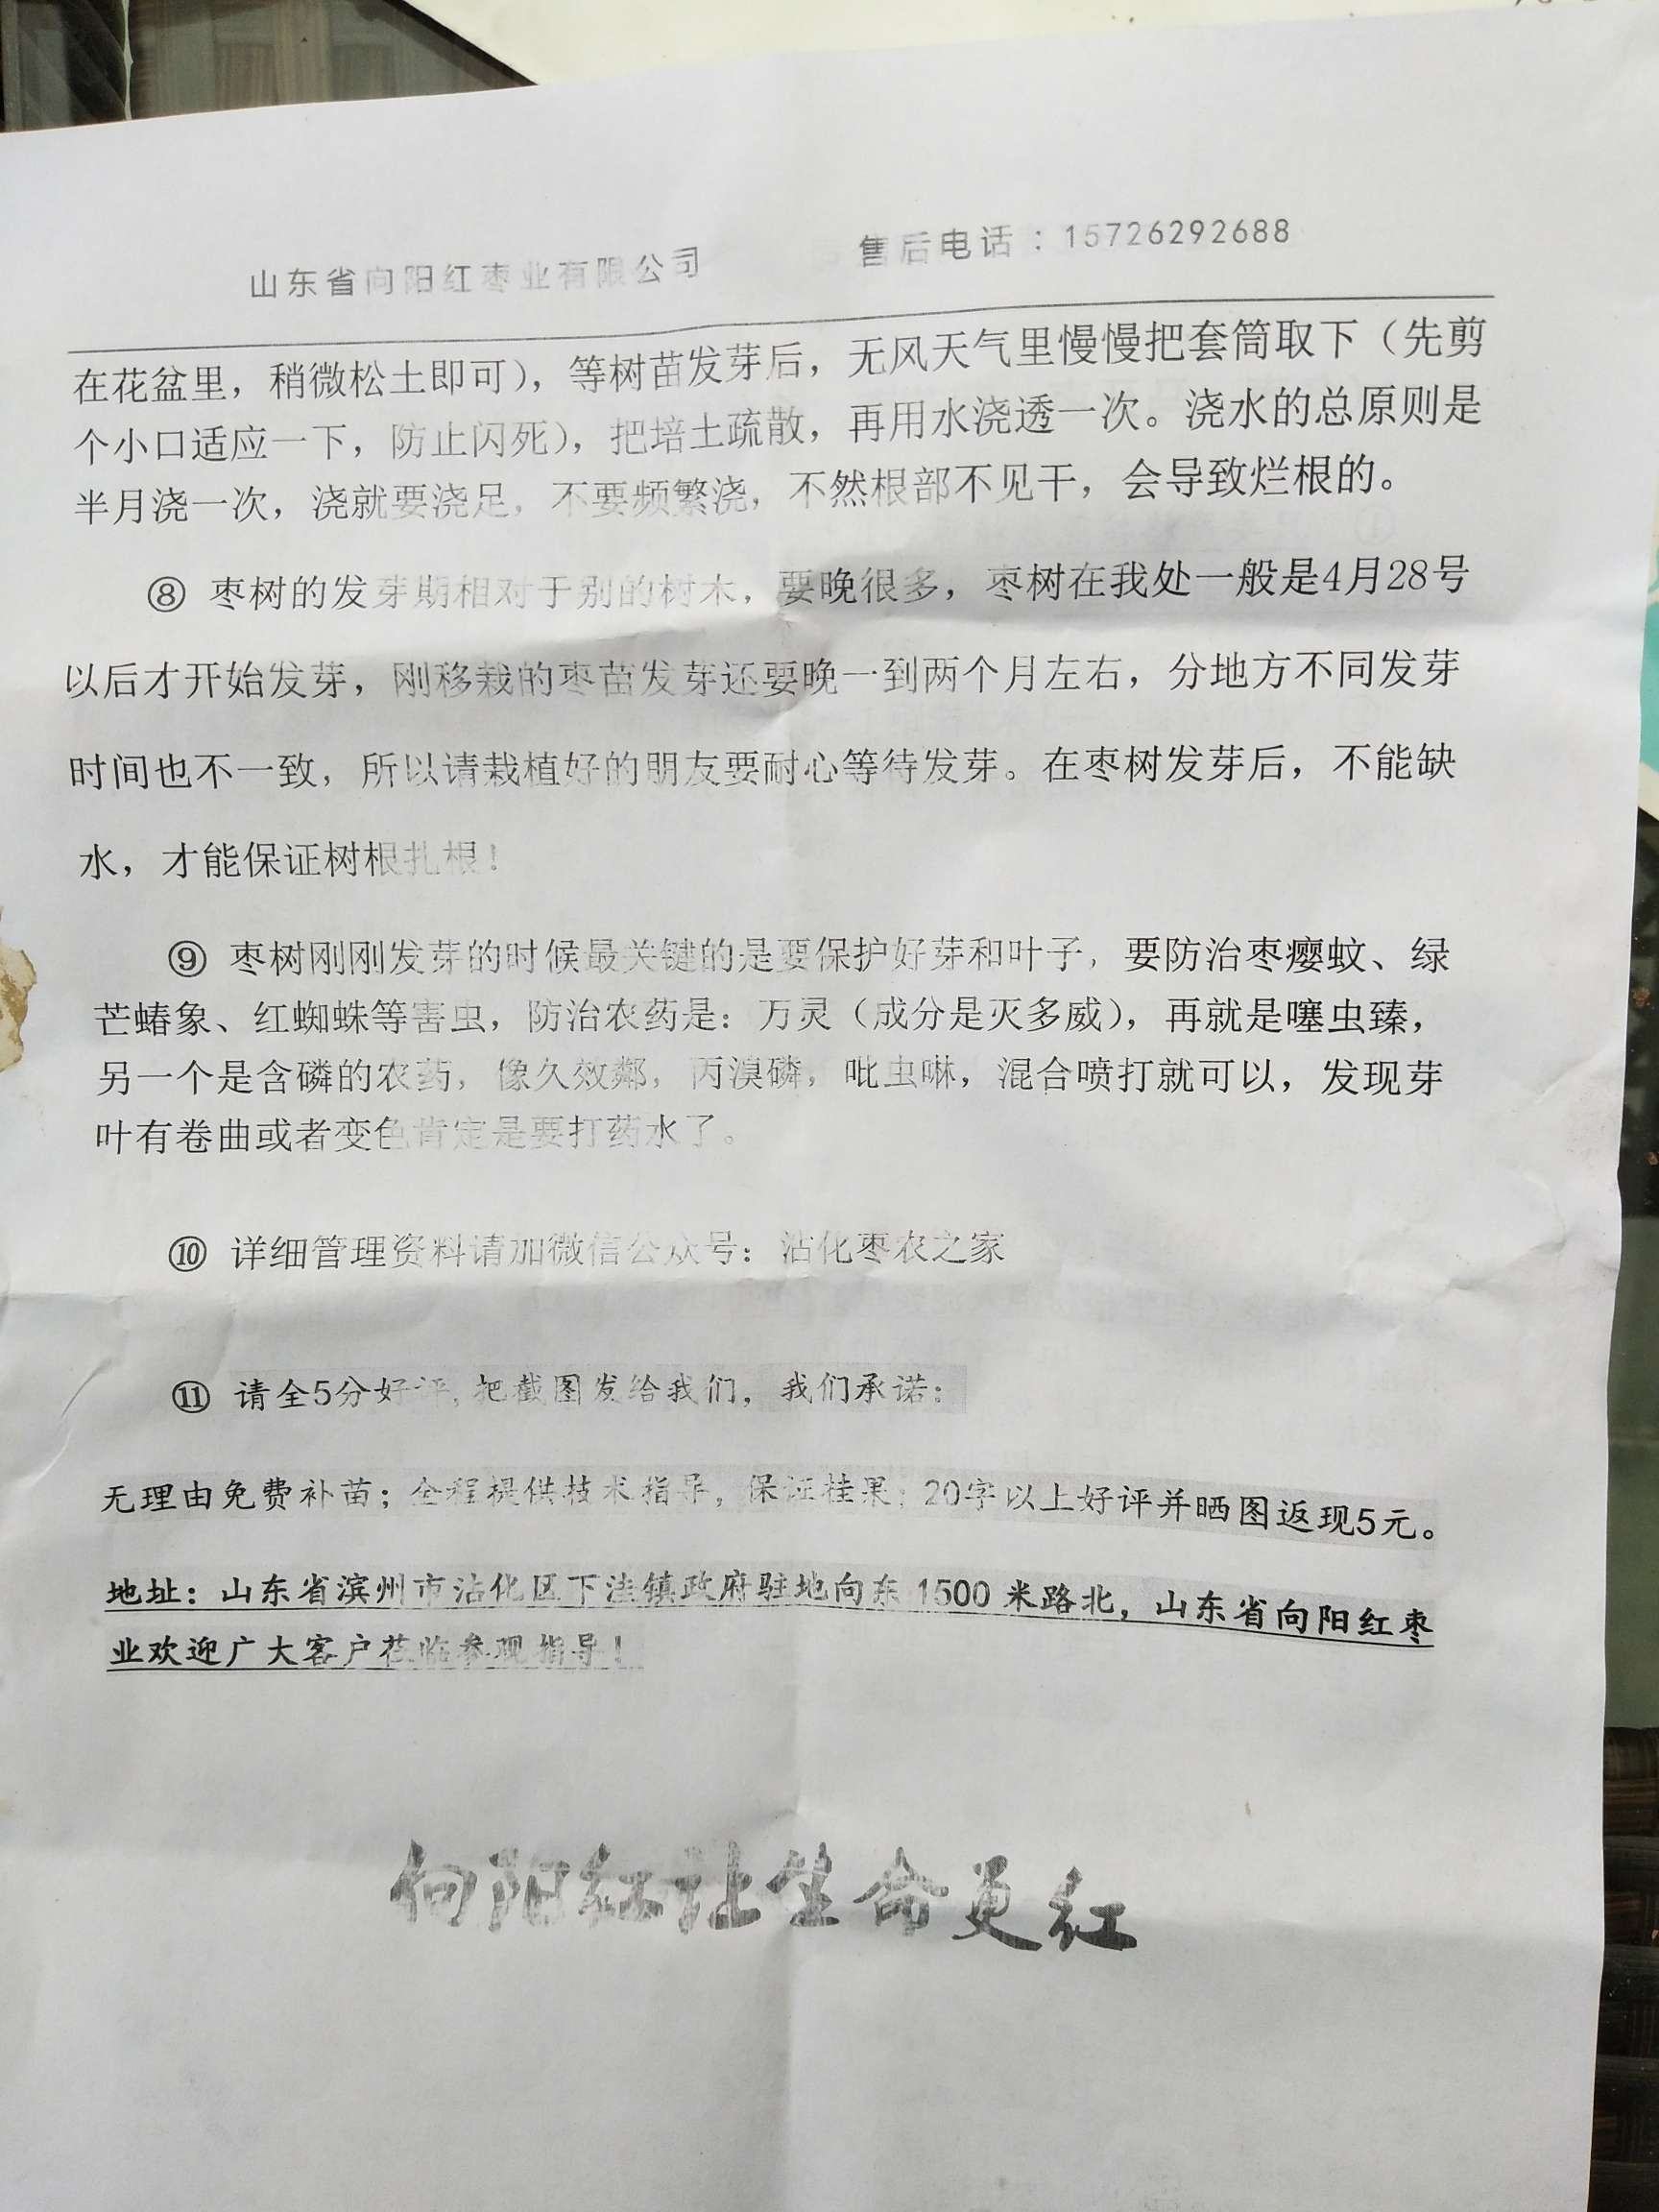 山东省向阳红枣业有限公司 售后电话：15726292688
在花盆里，稍微松土即可），等树苗发芽后，无风天气里慢慢把套筒取下（先剪
个小口适应一下，防止闪死），把培土疏散，再用水浇透一次。浇水的总原则是
半月浇一次，浇就要浇足，不要频繁浇，不然根部不见干，会导致烂根的。
⑧ 枣树的发芽期相对于别的树木，要晚很多，枣树在我处一般是4月28号
以后才开始发芽，刚移栽的枣苗发芽还要晚一到两个月左右，分地方不同发芽
时间也不一致，所以请栽植好的朋友要耐心等待发芽。在枣树发芽后，不能缺
水，才能保证树根扎根！
⑨ 枣树刚刚发芽的时候最关键的是要保护好芽和叶子，要防治枣瘿蚊、绿
芒蝽象、红蜘蛛等害虫，防治农药是：万灵（成分是灭多威），再就是噻虫臻，
另一个是含磷的农药，像久效粼，丙溴磷，吡虫啉，混合喷打就可以，发现芽
叶有卷曲或者变色肯定是要打药水了。
⑩ 详细管理资料请加微信公众号：沾化枣农之家
⑪ 请全5分好评，把截图发给我们，我们承诺：
无理由免费补苗；全程提供技术指导，保证挂果；20字以上好评并晒图返现5元。
地址：山东省滨州市沾化区下洼镇政府驻地向东 1500 米路北，山东省向阳红枣
业欢迎广大客户莅临参观指导！
向阳红让生命更红